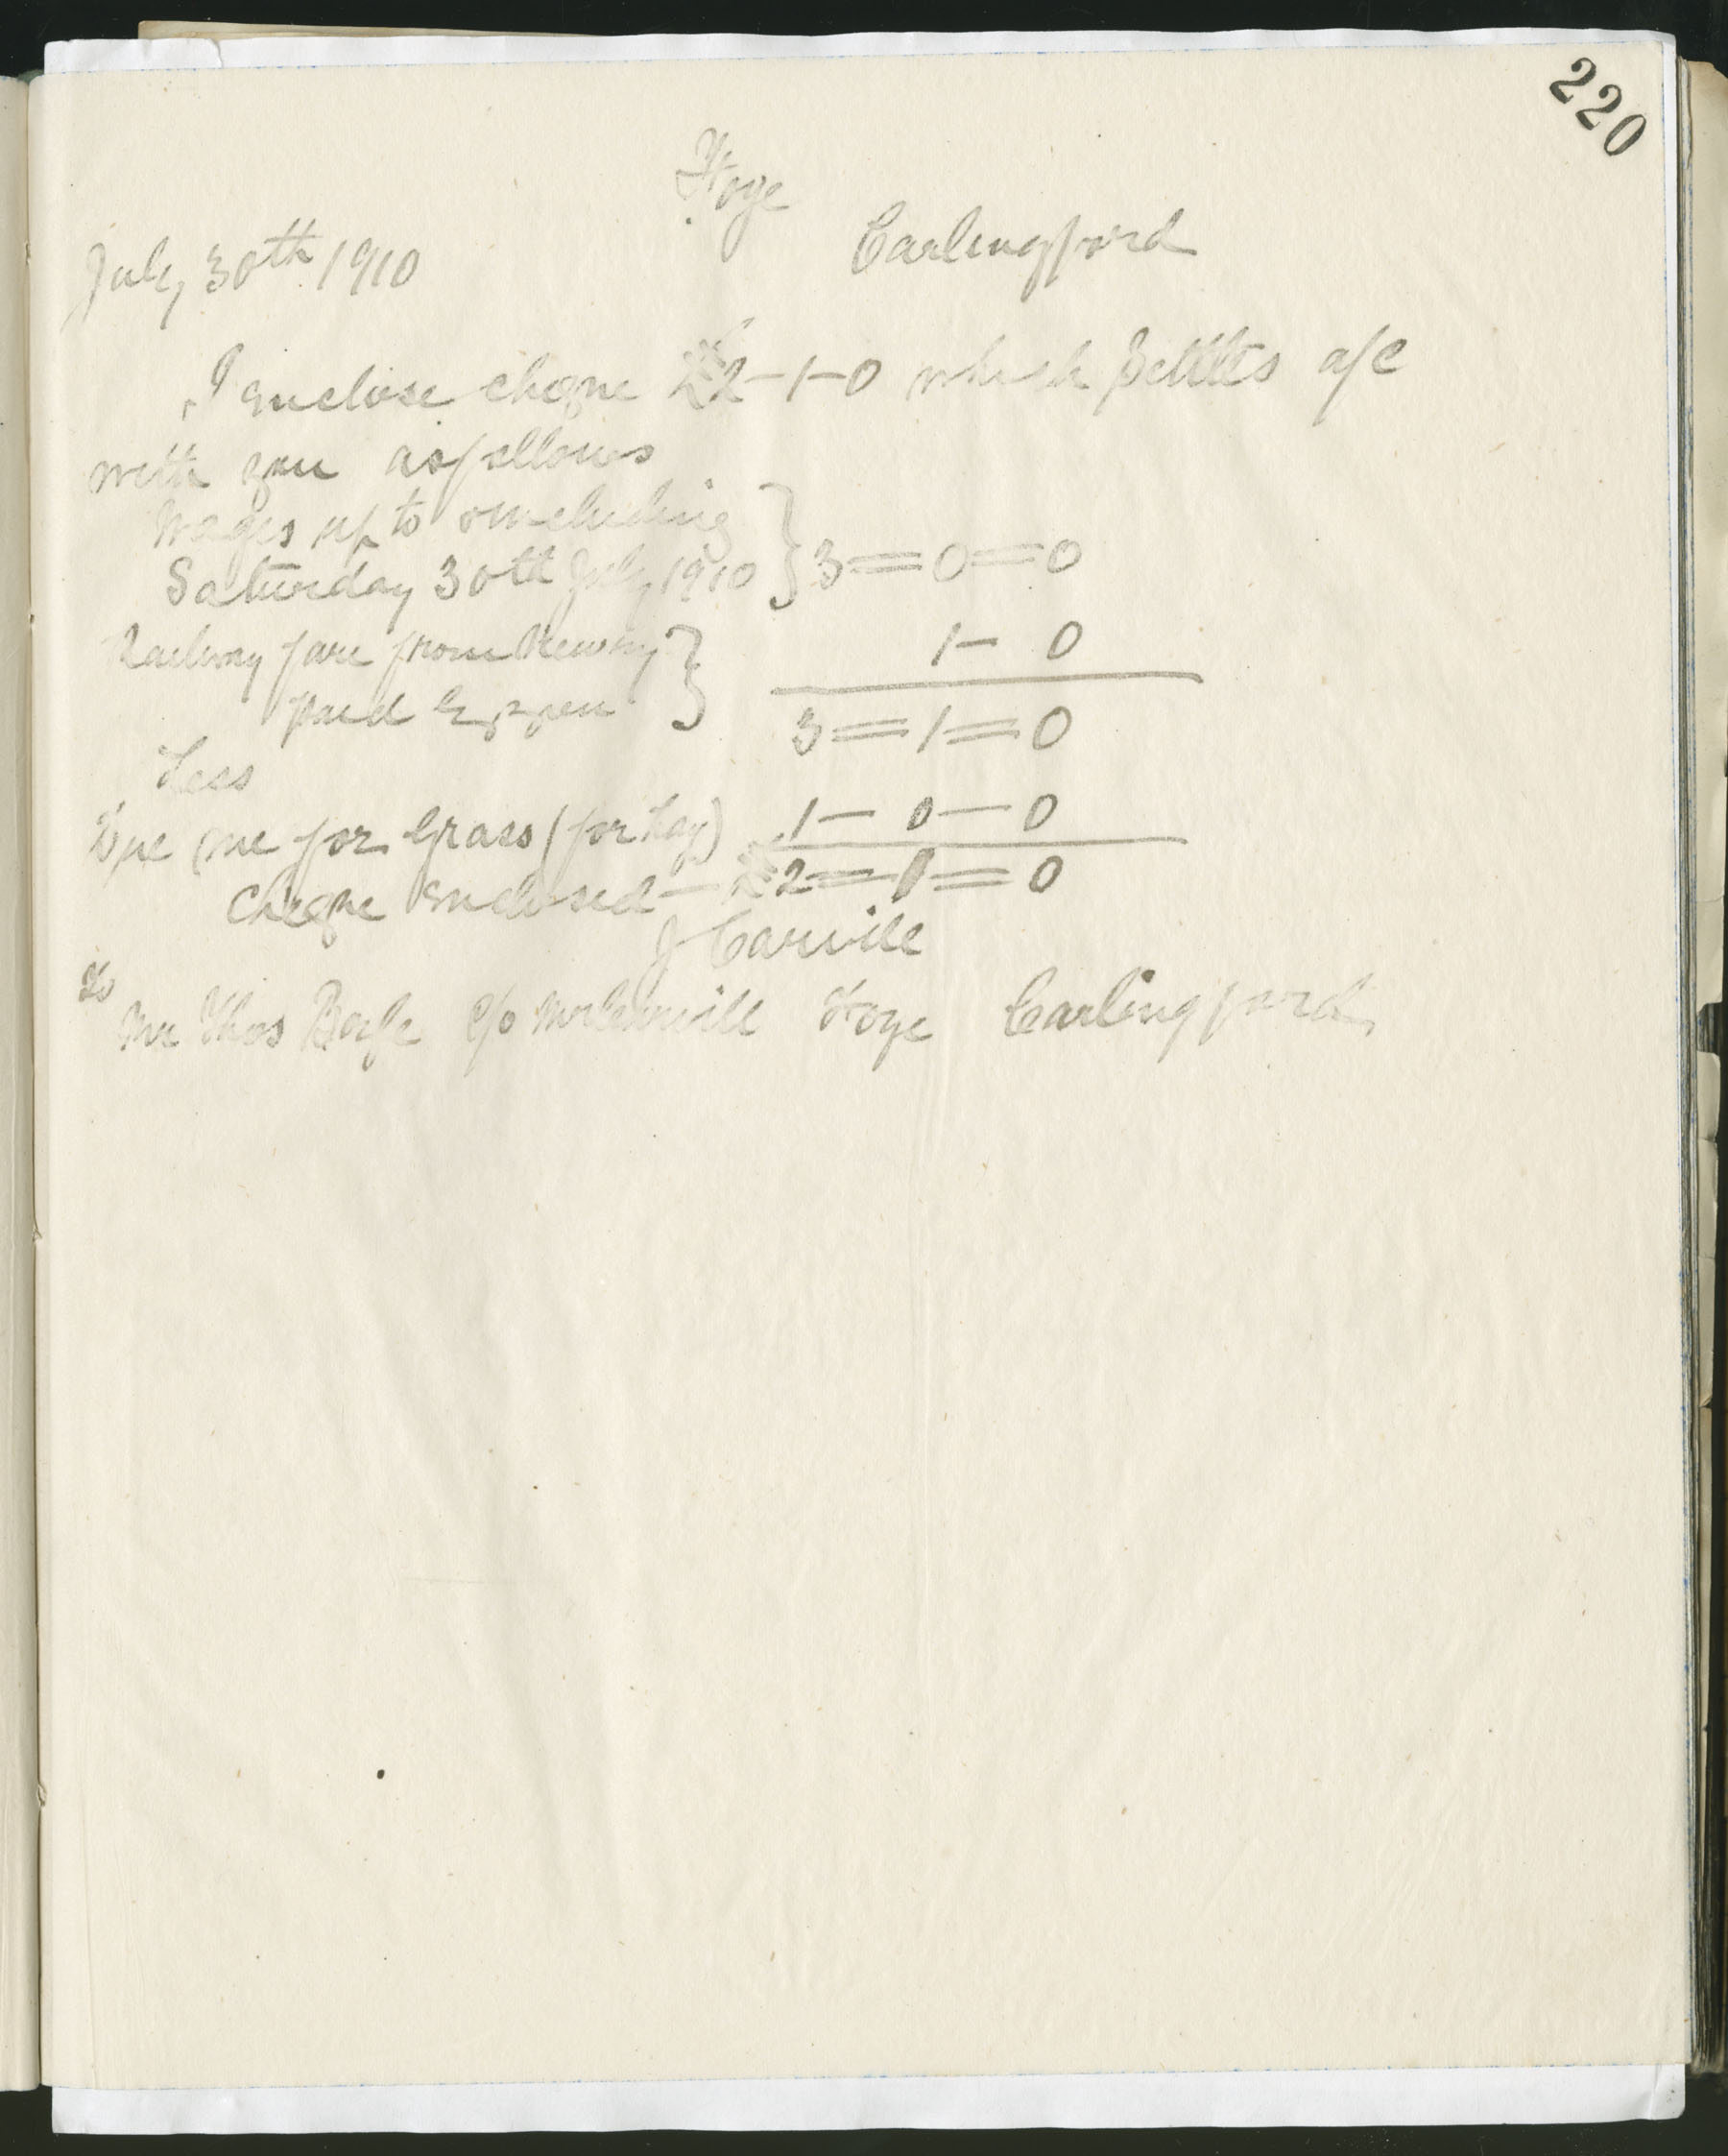 220
Carlingford
July 30th 1910
I enclose cheque £2-1-0 which settles a/c
with you as follows
Wages up to & including
Saturday 30th July 1910 } 3=0=0
Railway fare from Newry } 1- 0
paid by you 3=1=0
Less
Due me for Grass (for hay) 1-0-0
Cheque enclosed - £2=1=0
J Carvill
To
Mr Thos Boyle c/o Carlingford